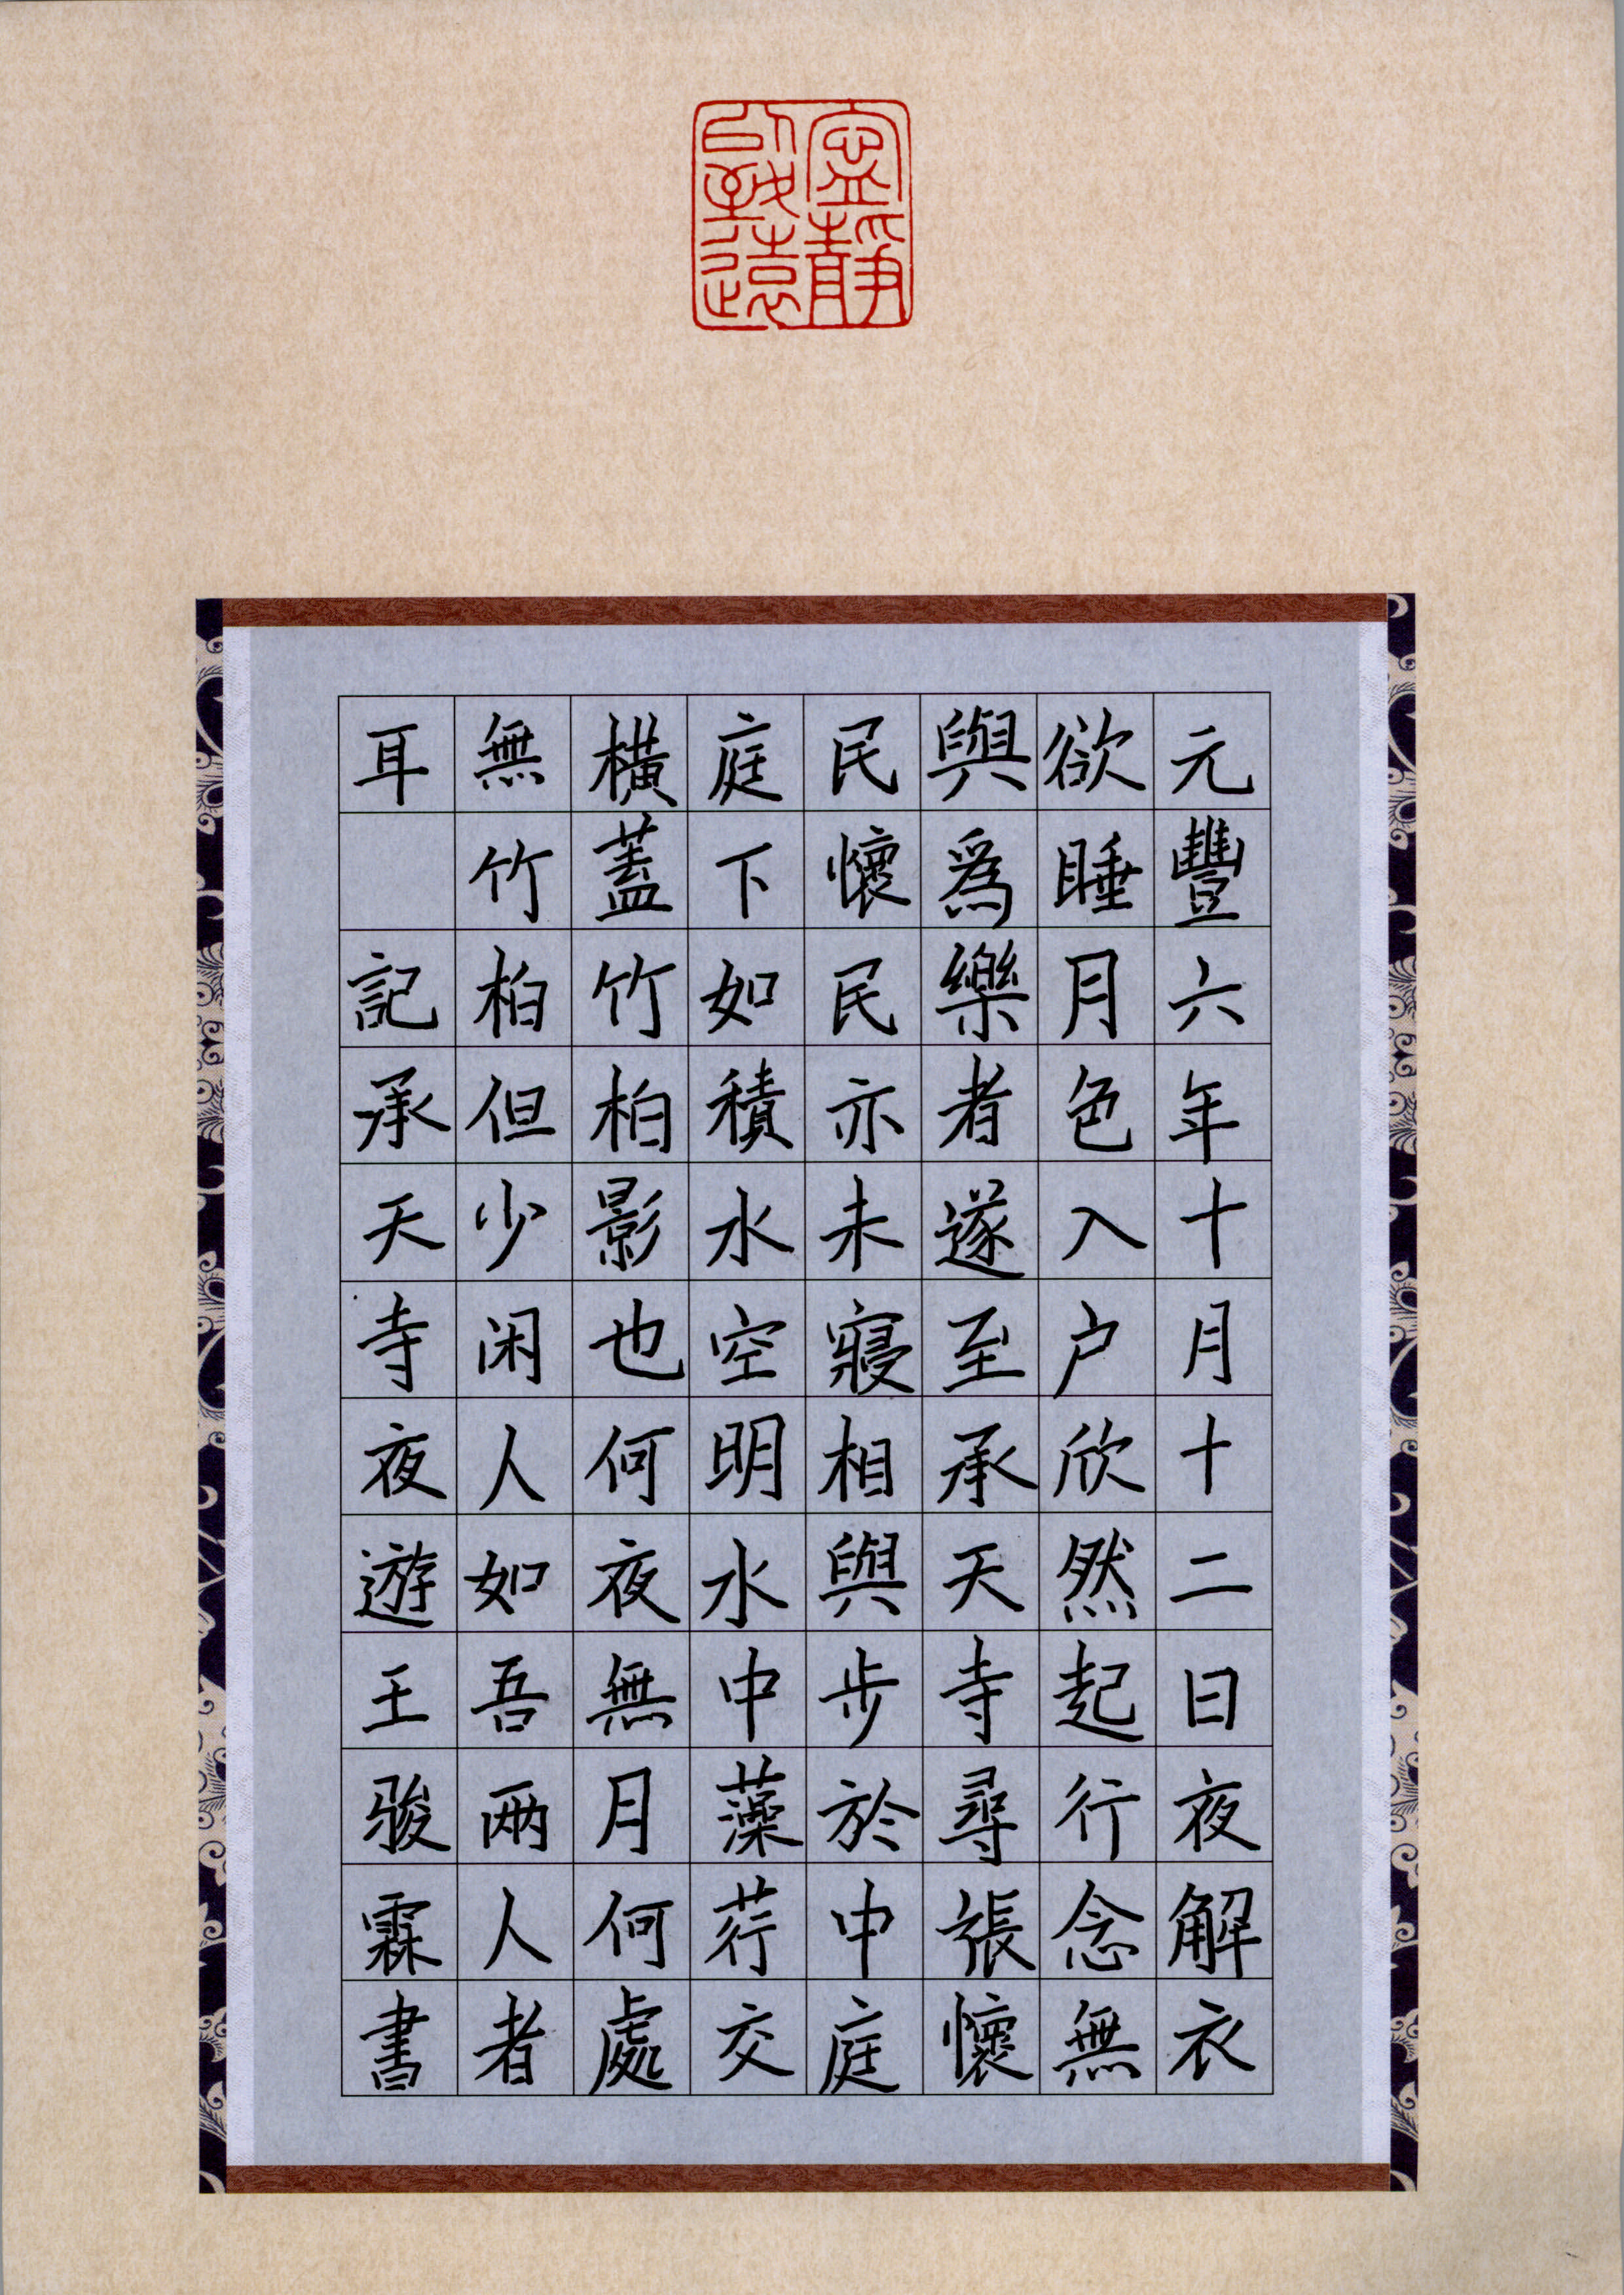 寧靜
致遠
元豐六年十月十二日夜解衣
欲睡月色入户欣然起行念無
與爲樂者遂至承天寺尋張懷
民懷民亦未寢相與步於中庭
庭下如積水空明水中藻荇交
橫蓋竹柏影也何夜無月何處
無竹柏但少闲人如吾两人者
耳 記承天寺夜遊王骏霖書